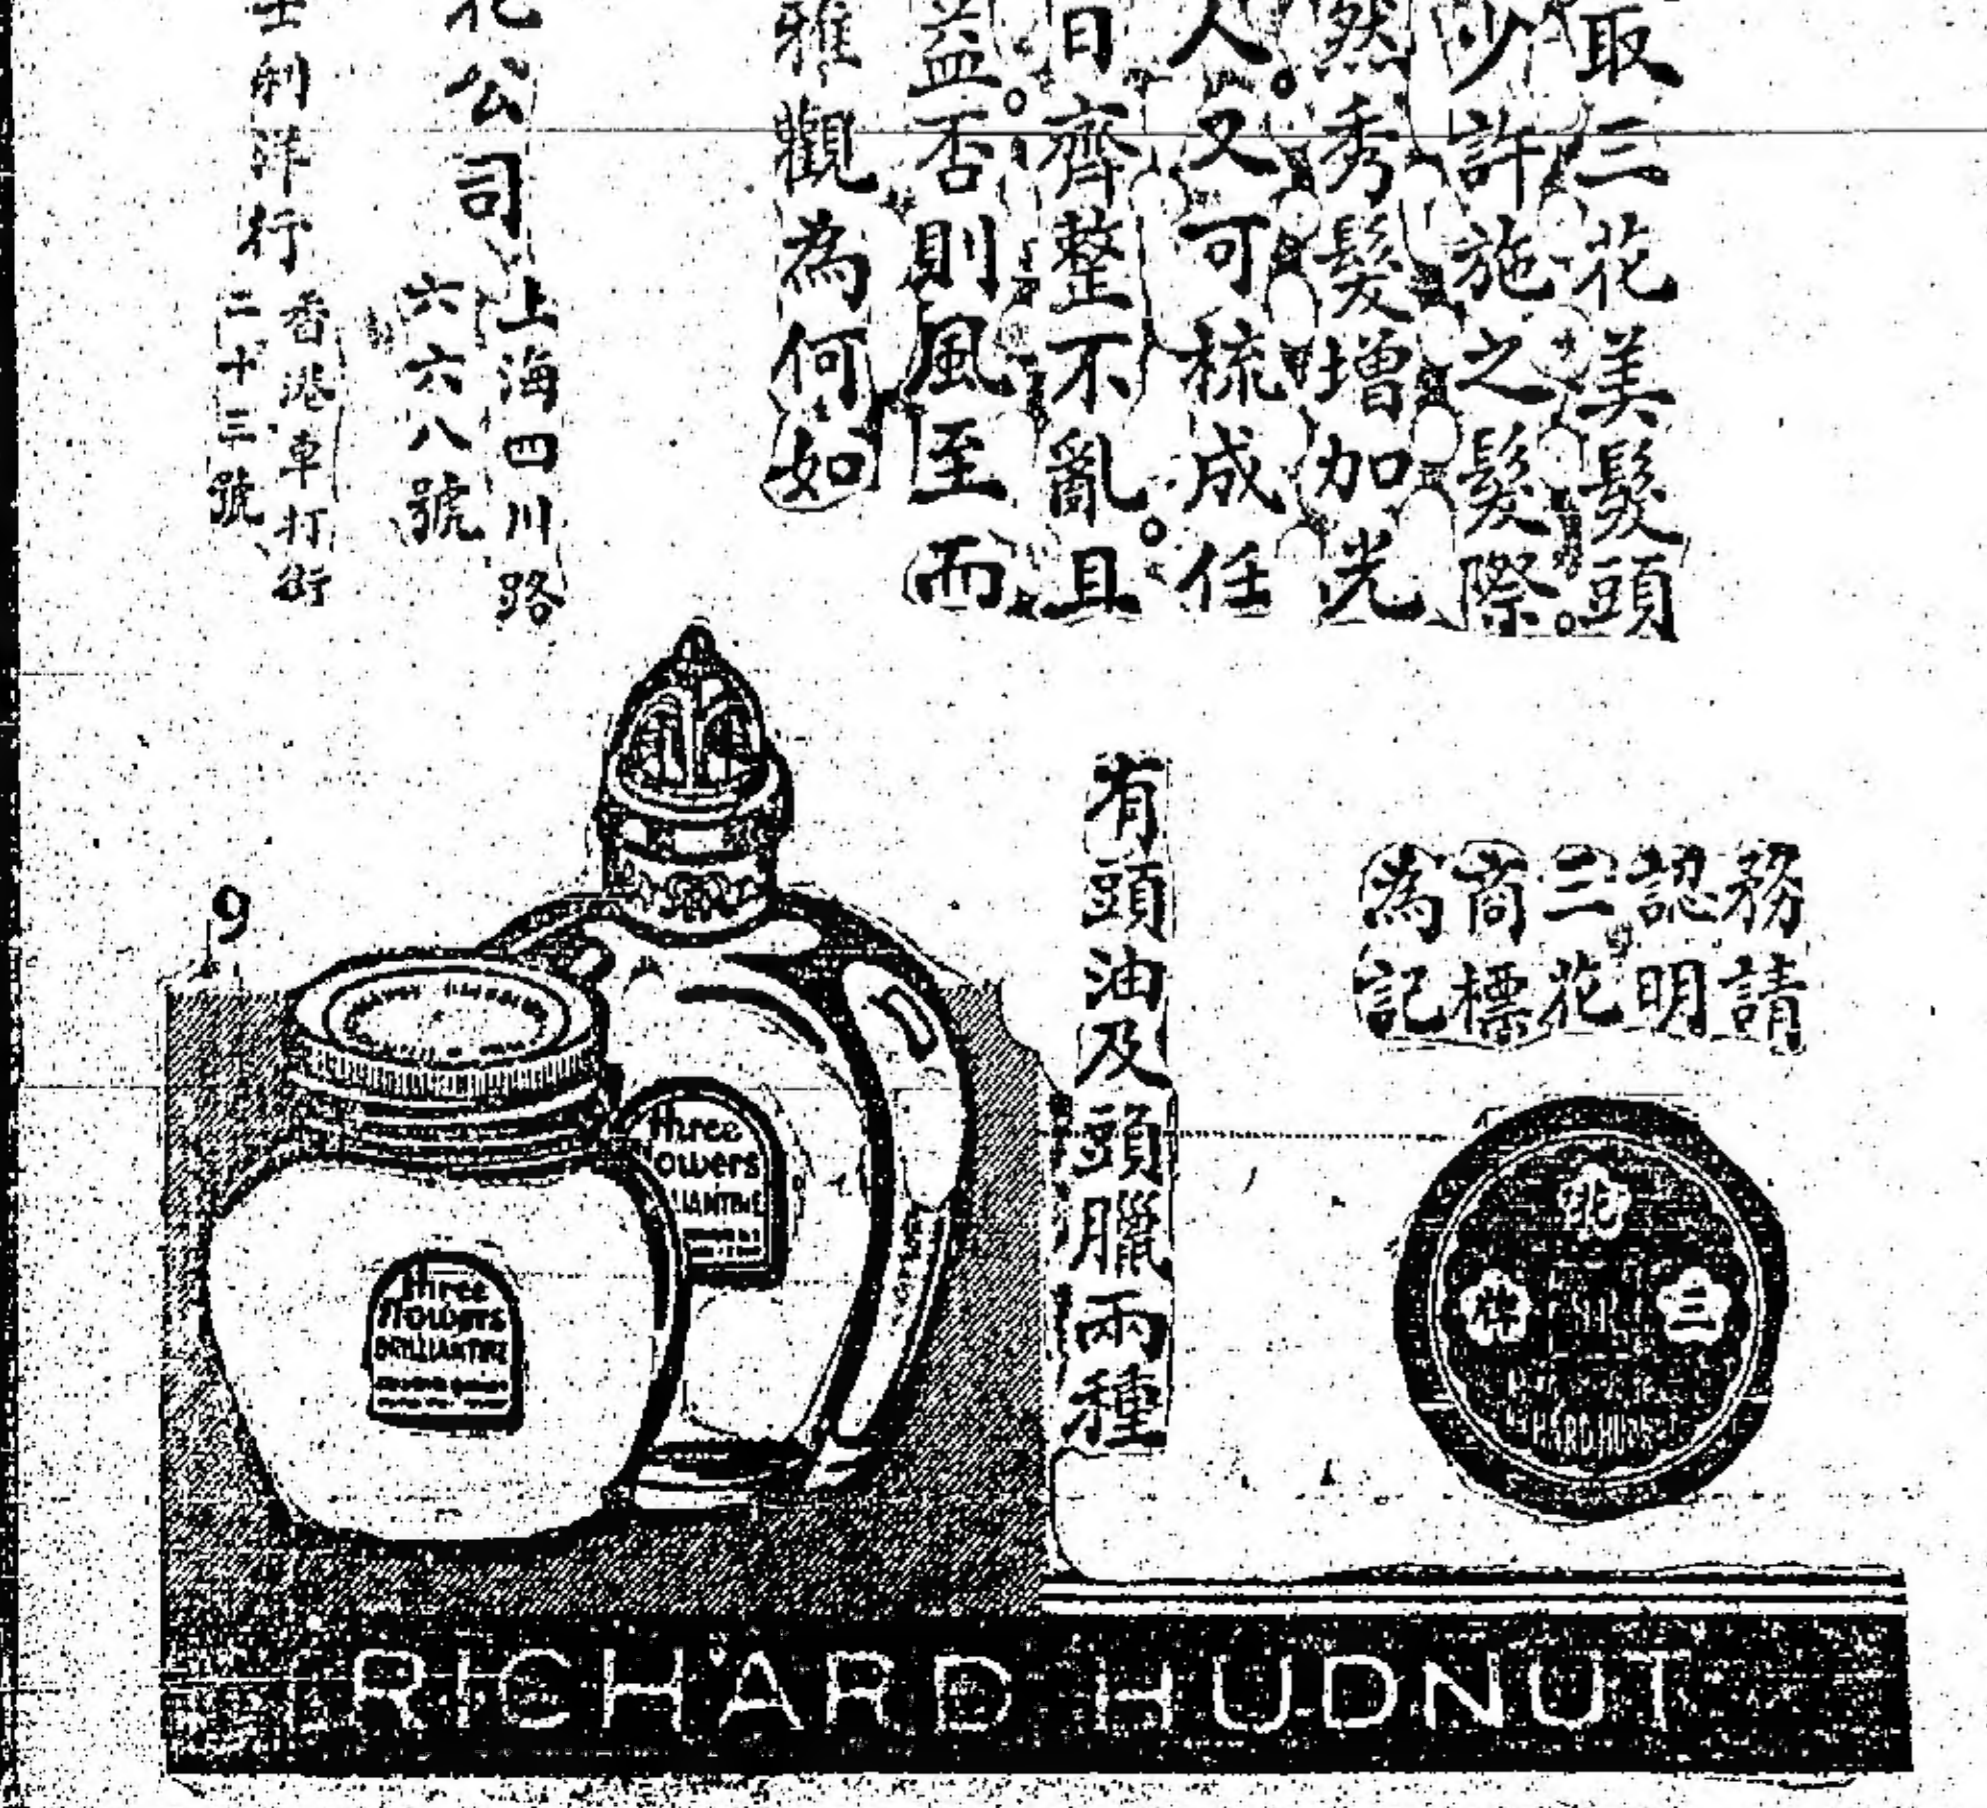 取三花美髮頭
少許施之髮際。
然秀髮增加光
人。又可梳成任
日齊整不亂。且
益。否則風至而
雅觀為何如
花公司
上海四川路
六六八號
士剌洋行
香港車打街
二十三號
務請
認明
三花
商標
為記
有頭油及頭臘兩種
花
三
牌
RICHARD HUDNUT
9
three
flowers
BRILLIANTINE
three
flowers
BRILLIANTINE
RICHARD HUDNUT